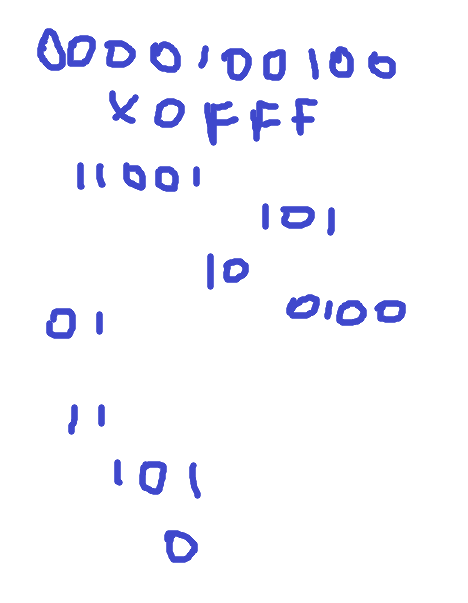 0000100100
X0FFF
11001
101
10
0100
01
11
101
0